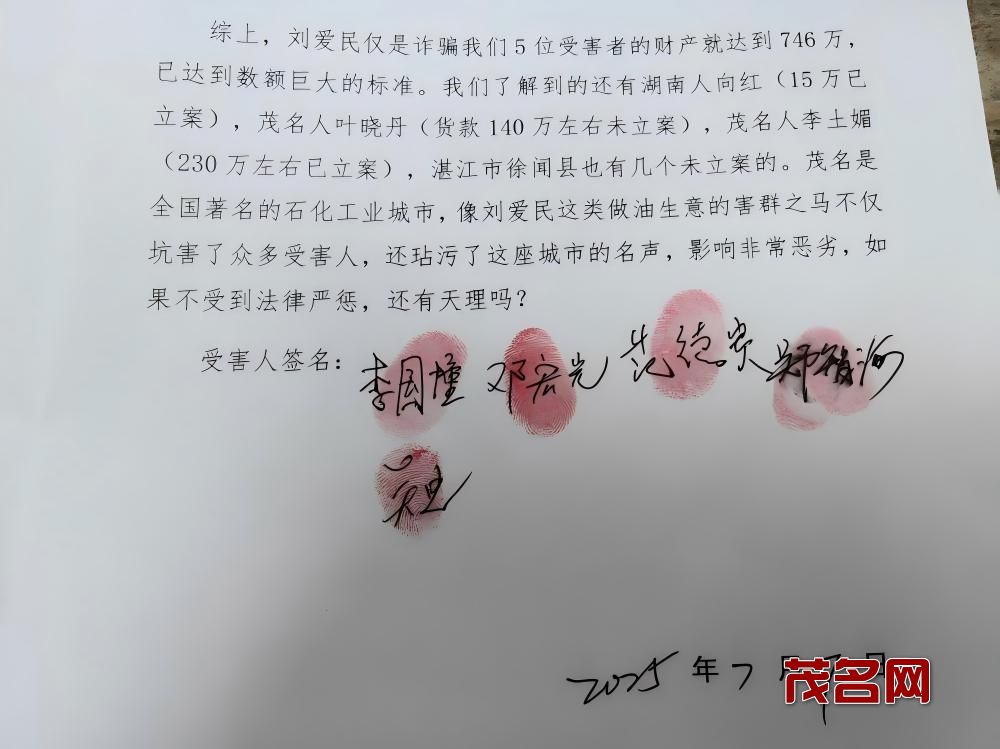 综上，刘爱民仅是诈骗我们5位受害者的财产就达到746万，
已达到数额巨大的标准。我们了解到的还有湖南人向红（15万已
立案），茂名人叶晓丹（货款140万左右未立案），茂名人李土媚
（230万左右已立案），湛江市徐闻县也有几个未立案的。茂名是
全国著名的石化工业城市，像刘爱民这类做油生意的害群之马不仅
坑害了众多受害人，还玷污了这座城市的名声，影响非常恶劣，如
果不受到法律严惩，还有天理吗？
受害人签名：李国 邓宏光 范德 郑
2025年7月 日
茂名网